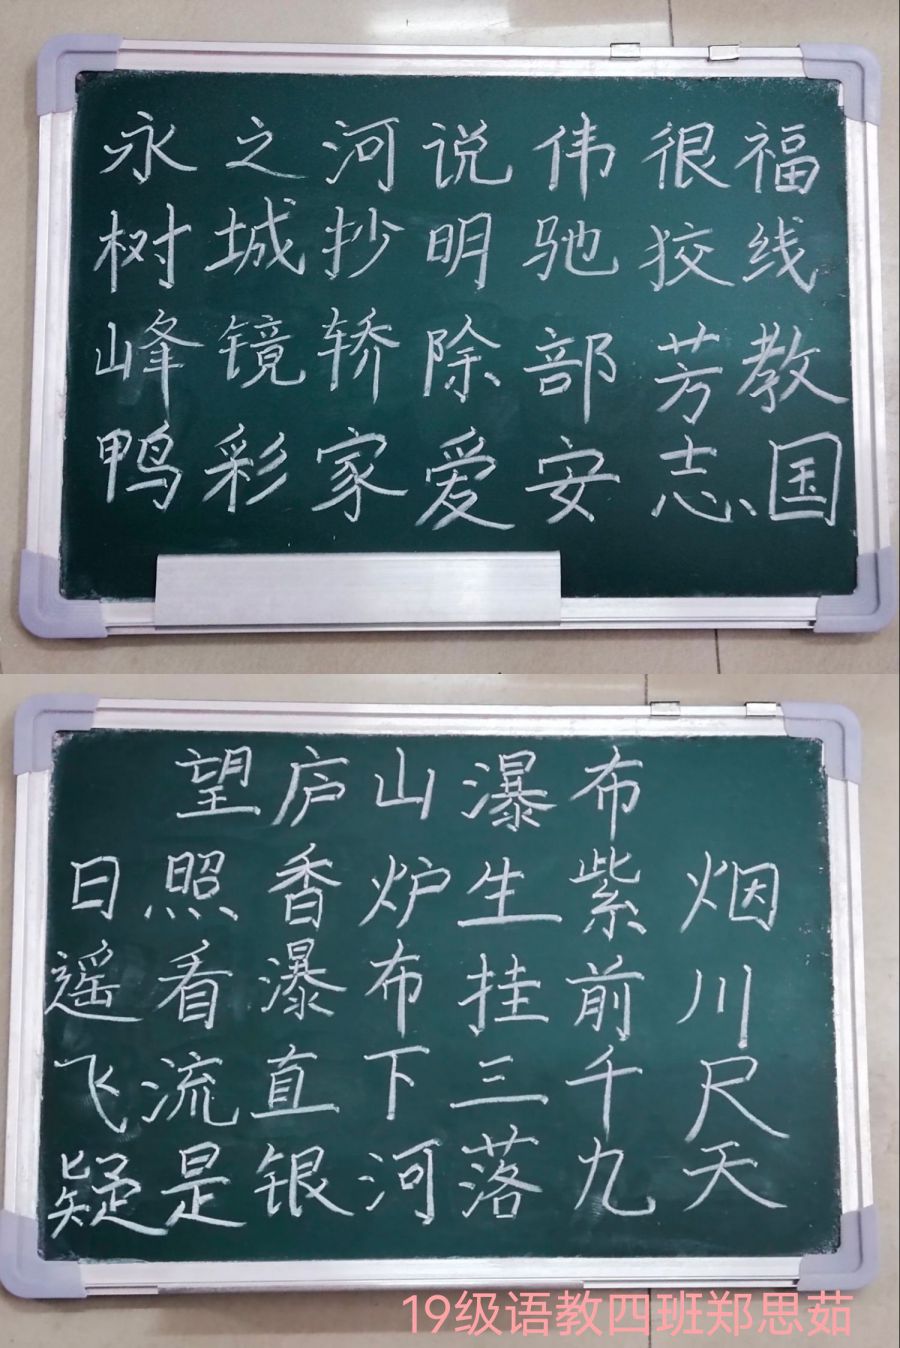 永之河说伟很福
树城抄明驰狡线
峰镜轿除部芳教
鸭彩家爱安志国
望庐山瀑布
日照香炉生紫烟
遥看瀑布挂前川
飞流直下三千尺
疑是银河落九天
19级语教四班郑思茹